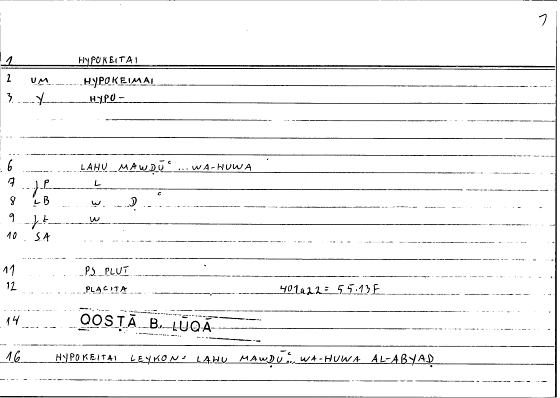 7
1 HYPOKEITAI
2 UM HYPOKEIMAI
3 Y HYPO-
6 LAHU MAWḌŪʿ... WA-HUWA
7 JP L
8 LB W Ḍ ʿ
9 JŁ W
10 SA
11 PS PLUT
12 PLACITA 401a22 = 55.13F
14 QOSṬĀ B. LŪQĀ
16 HYPOKEITAI LEYKON: LAHU MAWḌŪʿ... WA-HUWA AL-ABYAḌ